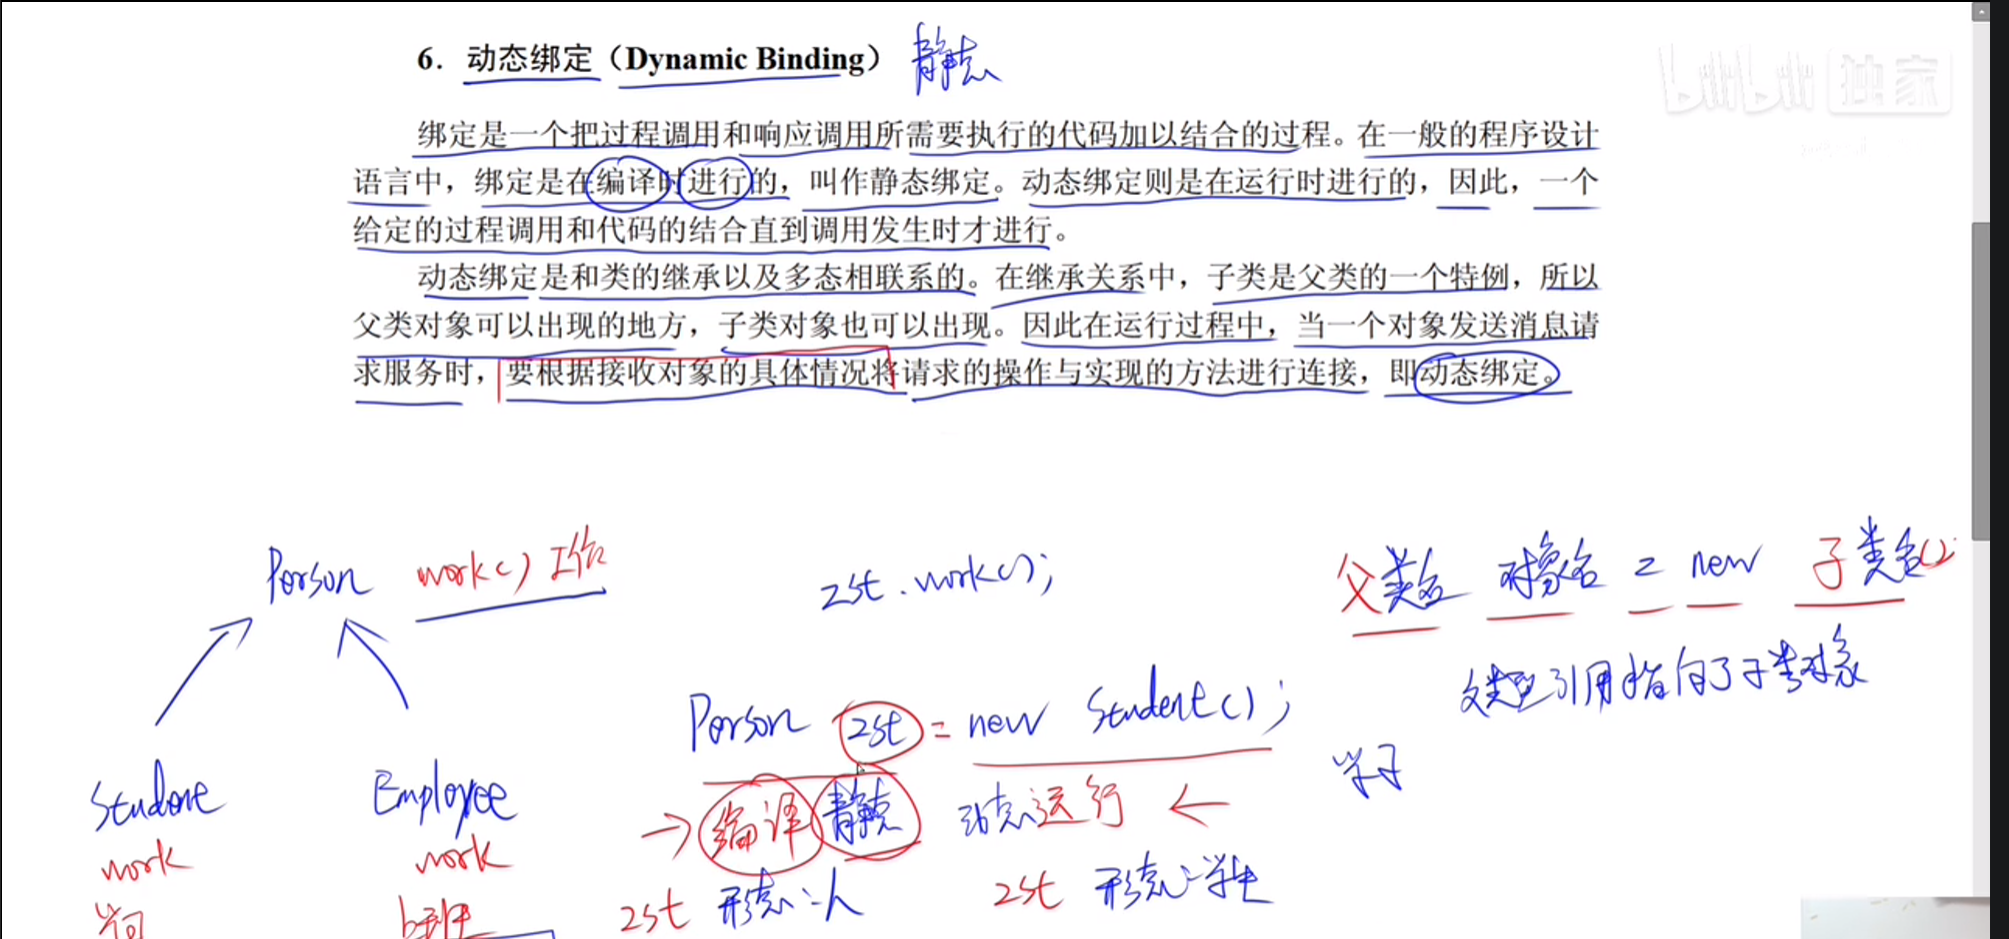 6. 动态绑定（Dynamic Binding） 静态
bilibili 独家
绑定是一个把过程调用和响应调用所需要执行的代码加以结合的过程。在一般的程序设计
语言中，绑定是在编译时进行的，叫作静态绑定。动态绑定则是在运行时进行的，因此，一个
给定的过程调用和代码的结合直到调用发生时才进行。
动态绑定是和类的继承以及多态相联系的。在继承关系中，子类是父类的一个特例，所以
父类对象可以出现的地方，子类对象也可以出现。因此在运行过程中，当一个对象发送消息请
求服务时，要根据接收对象的具体情况将请求的操作与实现的方法进行连接，即动态绑定。
Person work() 工作
zst.work();
父类名 对象名 = new 子类名();
父类型引用指向了子类对象
Person zst = new Student();
Employee
→ 编译 静态 动态运行 ←
work work
zst 形态:人 zst 形态:学生